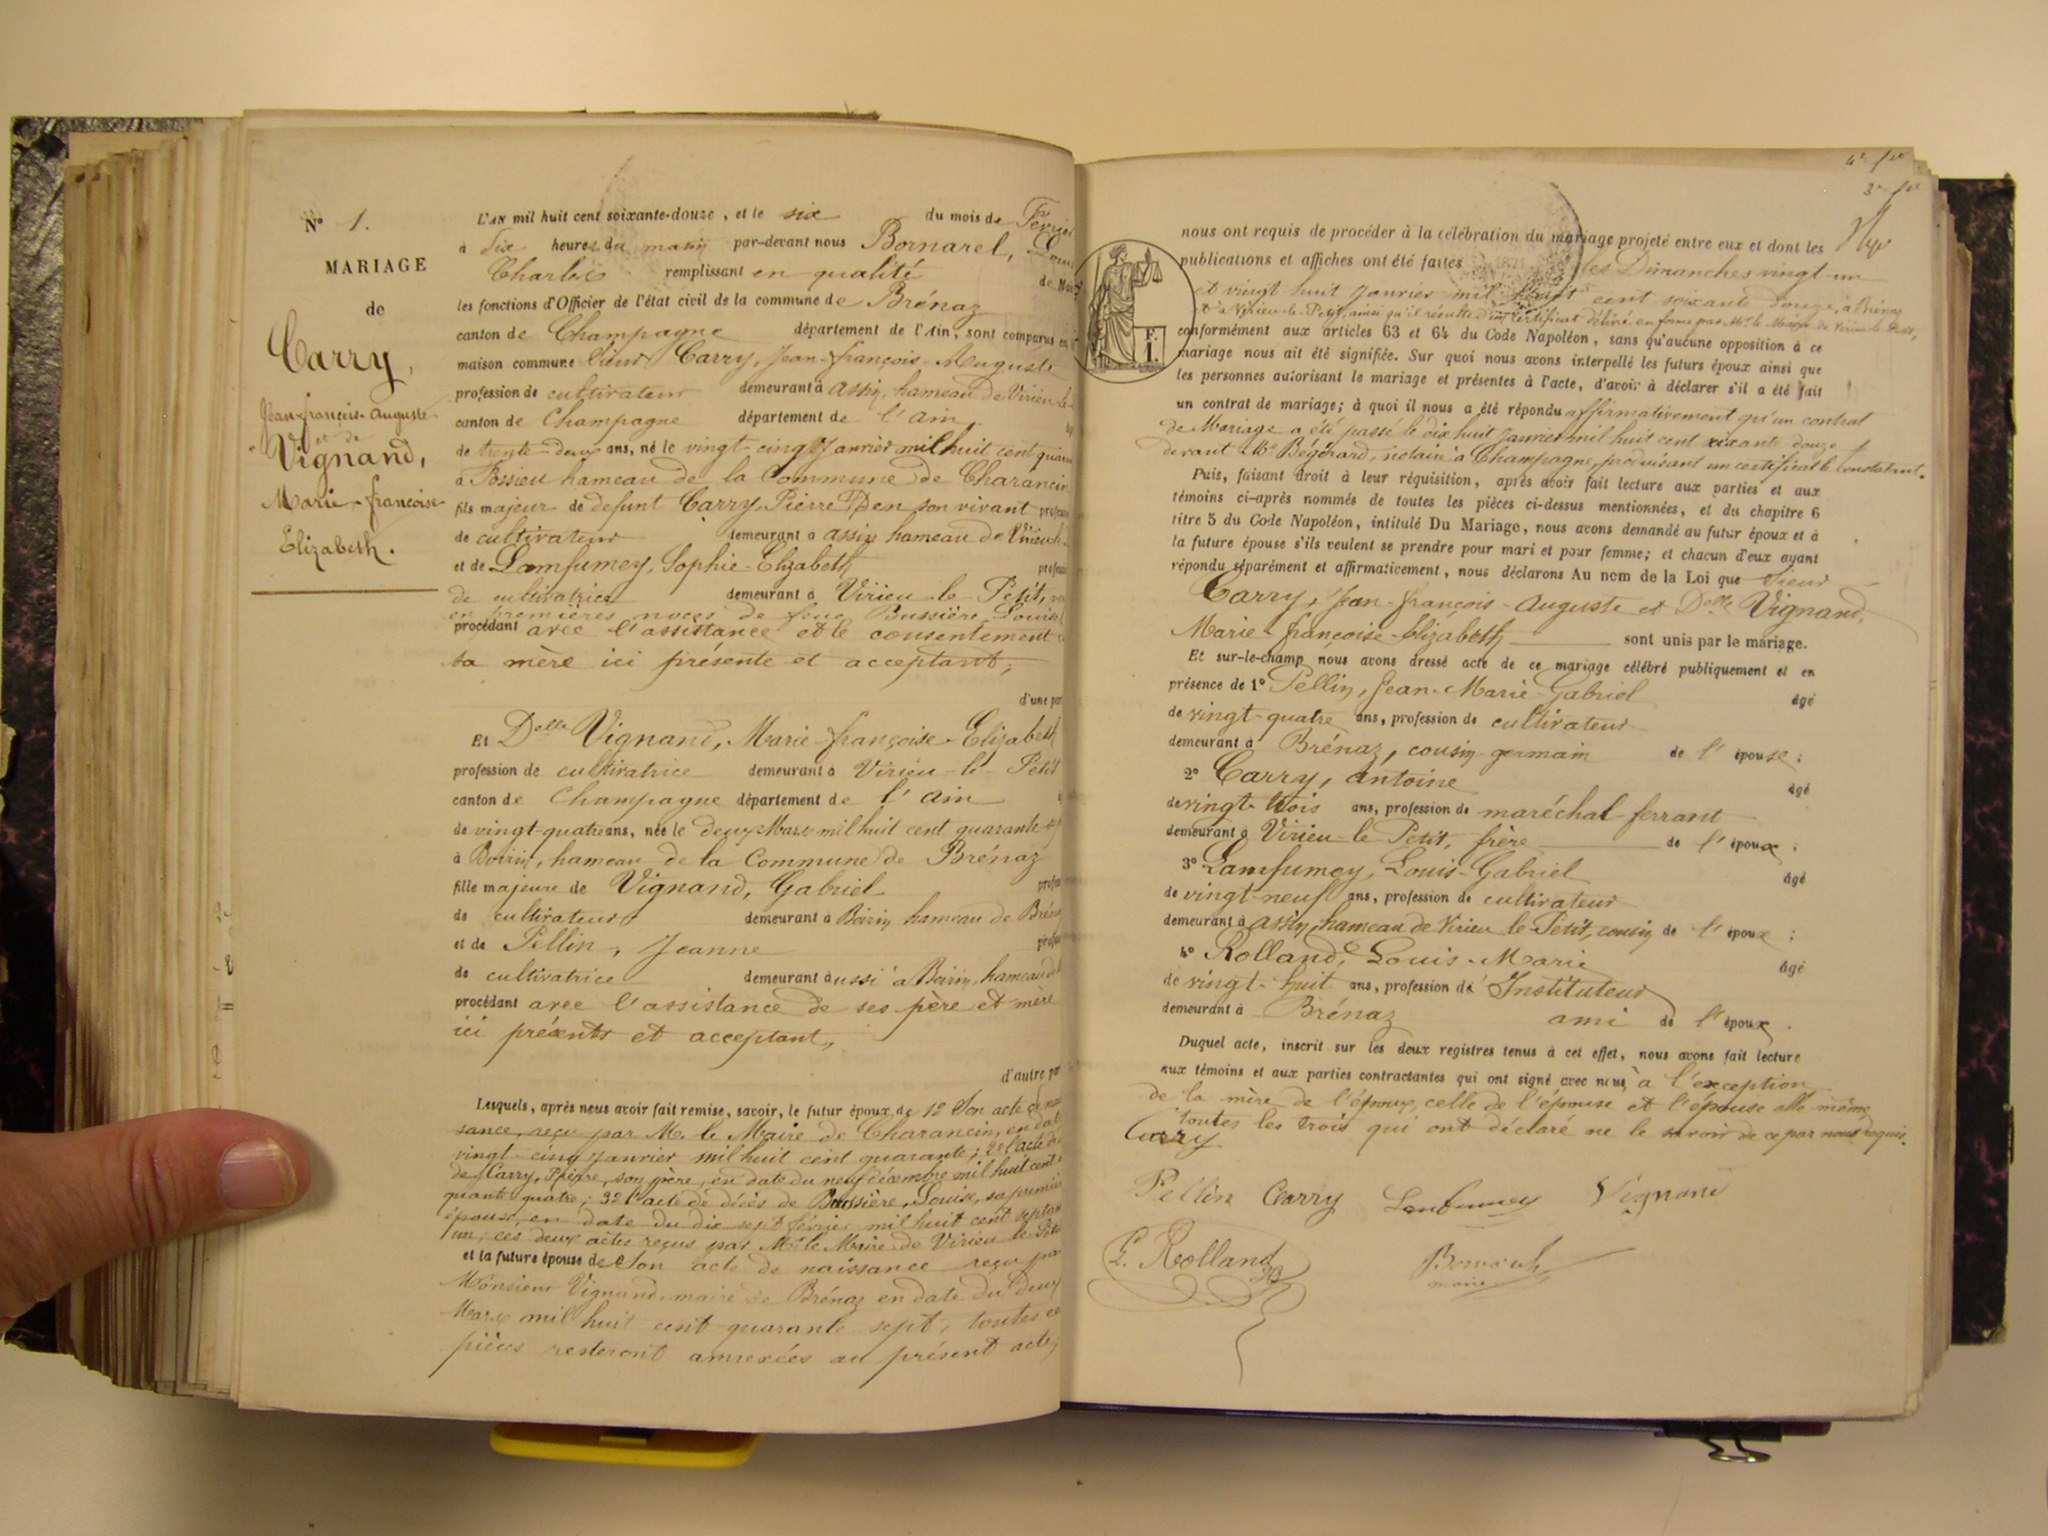 N° 1.
MARIAGE
de
Carry,
Jean-françois-Auguste
et de
Vignand,
Marie-françoise
Elizabeth.
L'AN mil huit cent soixante-douze, et le six du mois de Février
à dix heures du matin par-devant nous Bornarel,
Charles remplissant en qualité
les fonctions d'Officier de l'état civil de la commune de Brénaz
canton de Champagne département de l'Ain, sont comparus en
maison commune Sieur Carry, Jean-françois-Auguste
profession de cultivateur demeurant à assin, hameau de Virieu-le-
canton de Champagne département de l'Ain
de trente-deux ans, né le vingt-cinq Janvier mil huit cent
à Possieu hameau de la Commune de Charancin
fils majeur de defunt Carry, Pierre en son vivant
de cultivateur demeurant à assin hameau de Virieu
et de Lamfumey, Sophie-Elizabeth
de cultivatrice demeurant à Virieu-le-Petit,
en premières noces de feue Bussière, Louise
procédant avec l'assistance et le consentement
sa mère ici présente et acceptant;
d'une par
Et Delle Vignand, Marie-françoise-Elizabeth
profession de cultivatrice demeurant à Virieu-le-Petit
canton de Champagne département de l'Ain
de vingt-quatre ans, née le deux Mars mil huit cent quarante
à Boirin, hameau de la Commune de Brénaz
fille majeure de Vignand, Gabriel
de cultivateur demeurant à Boirin, hameau de
et de Pellin, Jeanne
de cultivatrice demeurant aussi à Boirin, hameau
procédant avec l'assistance de ses père et mère
ici présents et acceptant,
d'autre par
Lesquels, après nous avoir fait remise, savoir, le futur époux de 1° Son acte de
sance, reçu par M. le Maire de Charancin, en
vingt-cinq Janvier mil huit cent quarante; 2° l'acte de
de Carry, Pierre, son père, en date du neuf mil huit cent
quante quatre; 3° l'acte de décès de Bussière, Louise, sa première
épouse, en date du dix sept février mil huit cent
un; ces deux actes reçus par Mr le Maire de Virieu le
et la future épouse de Son acte de naissance reçu par
Monsieur Vignand, maire de Brénaz en date du deux
Mars mil huit cent quarante sept, toutes ces
pièces resteront annexées au présent acte,
nous ont requis de procéder à la célébration du mariage projeté entre eux et dont les
publications et affiches ont été faites les Dimanches vingt-un
et vingt huit Janvier mil huit cent soixante douze, à Brénaz
et à Virieu-le-Petit, ainsi qu'il résulte d'un certificat délivré en forme par Mr le Maire de Virieu le Petit,
conformément aux articles 63 et 64 du Code Napoléon, sans qu'aucune opposition à ce
mariage nous ait été signifiée. Sur quoi nous avons interpellé les futurs époux ainsi que
les personnes autorisant le mariage et présentes à l'acte, d'avoir à déclarer s'il a été fait
un contrat de mariage; à quoi il nous a été répondu affirmativement qu'un contrat
de Mariage a été passé le dix huit Janvier mil huit cent soixante douze
devant Me Bégérard, notaire à Champagne, produisant un certificat le constatant.
Puis, faisant droit à leur réquisition, après avoir fait lecture aux parties et aux
témoins ci-après nommés de toutes les pièces ci-dessus mentionnées, et du chapitre 6
titre 5 du Code Napoléon, intitulé Du Mariage, nous avons demandé au futur époux et à
la future épouse s'ils veulent se prendre pour mari et pour femme; et chacun d'eux ayant
répondu séparément et affirmativement, nous déclarons Au nom de la Loi que Sieur
Carry, Jean-françois-Auguste et Delle Vignand,
Marie-françoise-Elizabeth sont unis par le mariage.
Et sur-le-champ nous avons dressé acte de ce mariage célébré publiquement et en
présence de 1° Pellin, Jean-Marie-Gabriel âgé
de vingt-quatre ans, profession de cultivateur
demeurant à Brénaz, cousin germain de l'épouse;
2° Carry, antoine âgé
de vingt-trois ans, profession de maréchal-ferrant
demeurant à Virieu-le-Petit, frère de l'époux;
3° Lamfumey, Louis-Gabriel âgé
de vingt-neuf ans, profession de cultivateur
demeurant à assin, hameau de Virieu le Petit, cousin de l'époux;
4° Rolland, Louis-Marie âgé
de vingt-huit ans, profession de Instituteur
demeurant à Brénaz ami de l'époux.
Duquel acte, inscrit sur les deux registres tenus à cet effet, nous avons fait lecture
aux témoins et aux parties contractantes qui ont signé avec nous, à l'exception
de la mère de l'époux, celle de l'épouse et l'épouse elle même
toutes les trois qui ont déclaré ne le savoir de ce par nous requis.
Carry
Pellin Carry Lanfumey Vignand
L. Rolland
maire